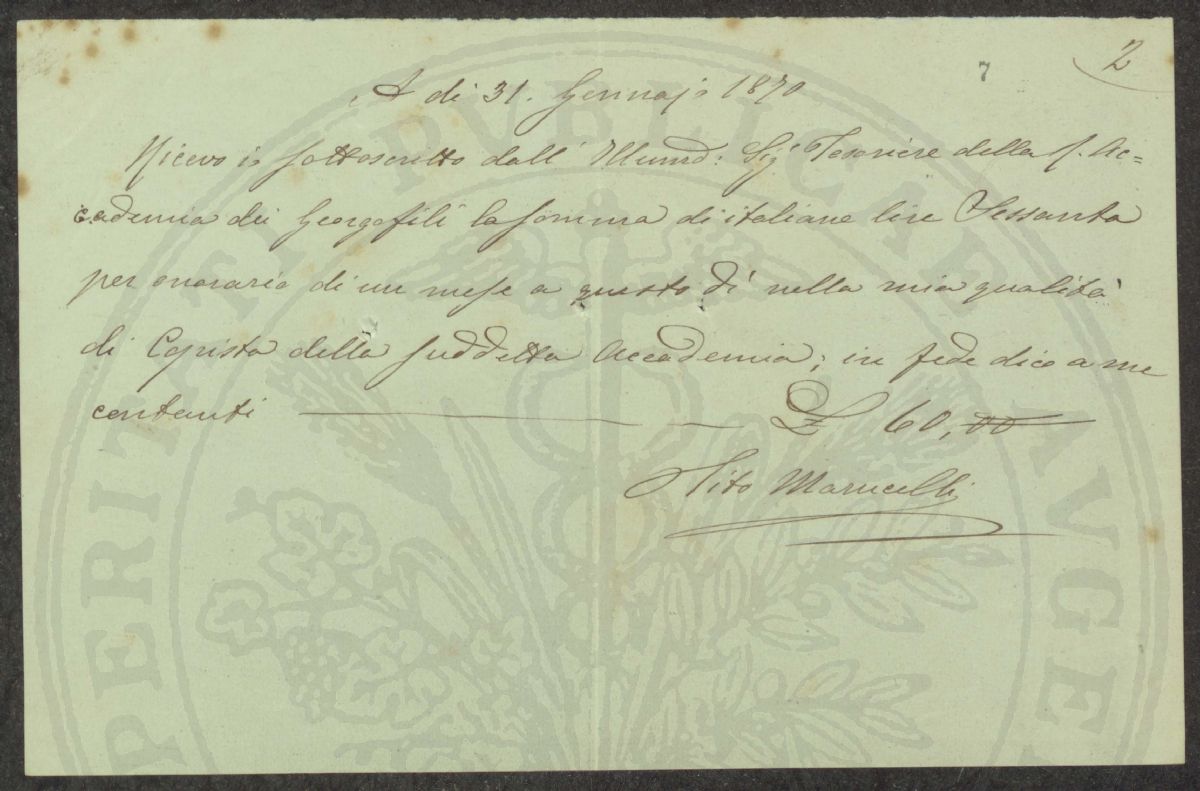 2
7
A di 31. Gennajo 1870
Ricevo io sottoscritto dall' Illumo: Sigr Tesoriere della R. Ac=
cademia dei Georgofili la somma di italiane lire Sessanta
per onorario di un mese a questo dì nella mia qualità
di Copista della suddetta Accademia; in fede dico a me
contanti £ 60,00
Tito Marucelli
PERITATI PVBLICAE AVGE